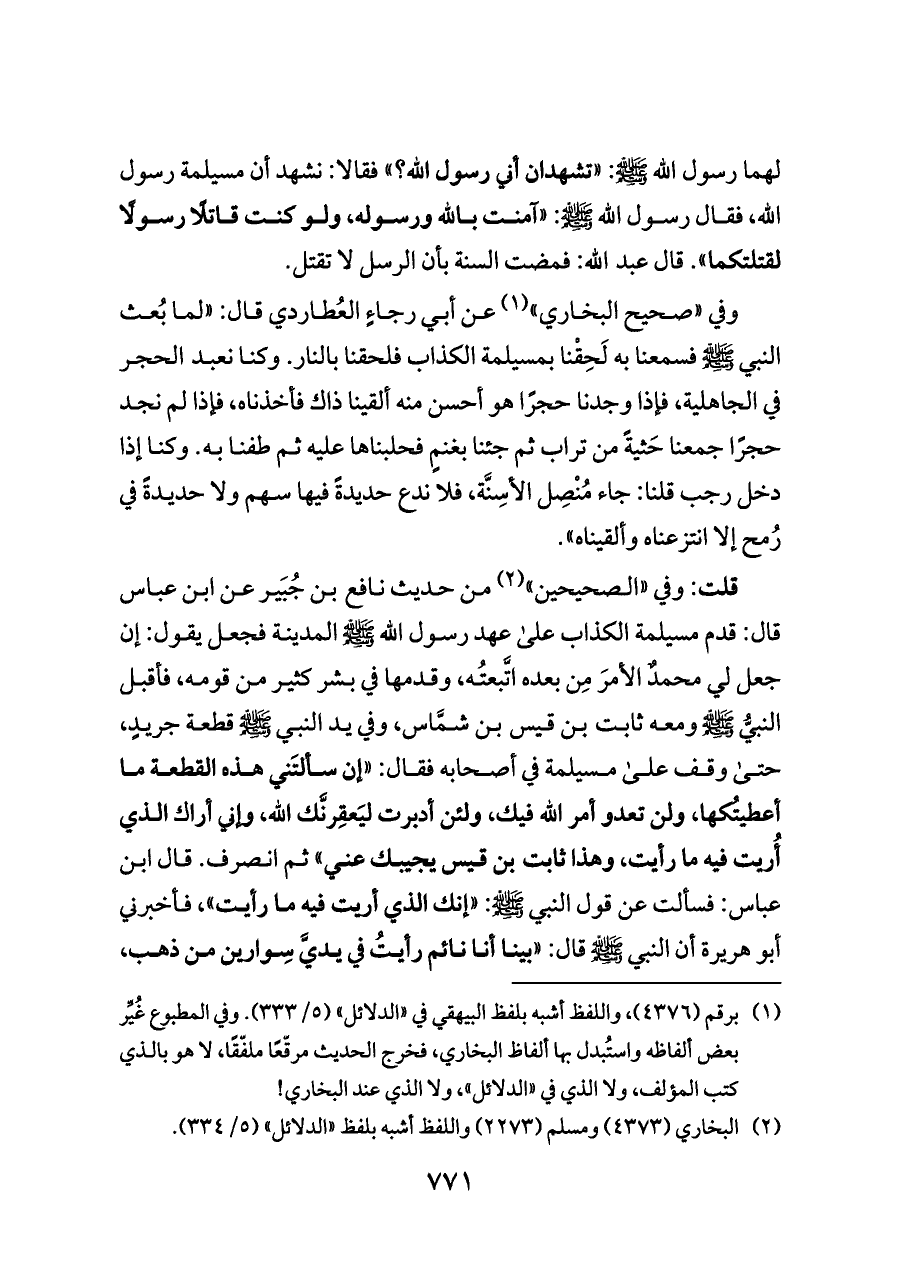 لهما رسول الله ﷺ: «تشهدان أني رسول الله؟» فقالا: نشهد أن مسيلمة رسول
الله، فقال رسول الله ﷺ: «آمنت بالله ورسوله، ولو كنت قاتلًا رسولًا
لقتلتكما». قال عبد الله: فمضت السنة بأن الرسل لا تقتل.
وفي «صحيح البخاري»(١) عن أبي رجاءٍ العُطاردي قال: «لما بُعث
النبي ﷺ فسمعنا به لَحِقْنا بمسيلمة الكذاب فلحقنا بالنار. وكنا نعبد الحجر
في الجاهلية، فإذا وجدنا حجرًا هو أحسن منه ألقينا ذاك فأخذناه، فإذا لم نجد
حجرًا جمعنا حَثيةً من تراب ثم جئنا بغنمٍ فحلبناها عليه ثم طفنا به. وكنا إذا
دخل رجب قلنا: جاء مُنْصِل الأسِنَّة، فلا ندع حديدةً فيها سهم ولا حديدةً في
رُمح إلا انتزعناه وألقيناه».
قلت: وفي «الصحيحين»(٢) من حديث نافع بن جُبَير عن ابن عباس
قال: قدم مسيلمة الكذاب علىٰ عهد رسول الله ﷺ المدينة فجعل يقول: إن
جعل لي محمدٌ الأمرَ مِن بعده اتَّبعتُه، وقدمها في بشر كثير من قومه، فأقبل
النبيُّ ﷺ ومعه ثابت بن قيس بن شمَّاس، وفي يد النبي ﷺ قطعة جريدٍ،
حتىٰ وقف علىٰ مسيلمة في أصحابه فقال: «إن سألتَني هذه القطعة ما
أعطيتُكها، ولن تعدو أمر الله فيك، ولئن أدبرت ليَعقِرنَّك الله، وإني أراك الذي
أُريت فيه ما رأيت، وهذا ثابت بن قيس يجيبك عني» ثم انصرف. قال ابن
عباس: فسألت عن قول النبي ﷺ: «إنك الذي أريت فيه ما رأيت»، فأخبرني
أبو هريرة أن النبي ﷺ قال: «بينا أنا نائم رأيتُ في يديَّ سِوارين من ذهب،
(١) برقم (٤٣٧٦)، واللفظ أشبه بلفظ البيهقي في «الدلائل» (٥/ ٣٣٣). وفي المطبوع غُيِّر
بعض ألفاظه واستُبدل بها ألفاظ البخاري، فخرج الحديث مرقّعًا ملفّقًا، لا هو بالذي
كتب المؤلف، ولا الذي في «الدلائل»، ولا الذي عند البخاري!
(٢) البخاري (٤٣٧٣) ومسلم (٢٢٧٣) واللفظ أشبه بلفظ «الدلائل» (٥/ ٣٣٤).
٧٧١